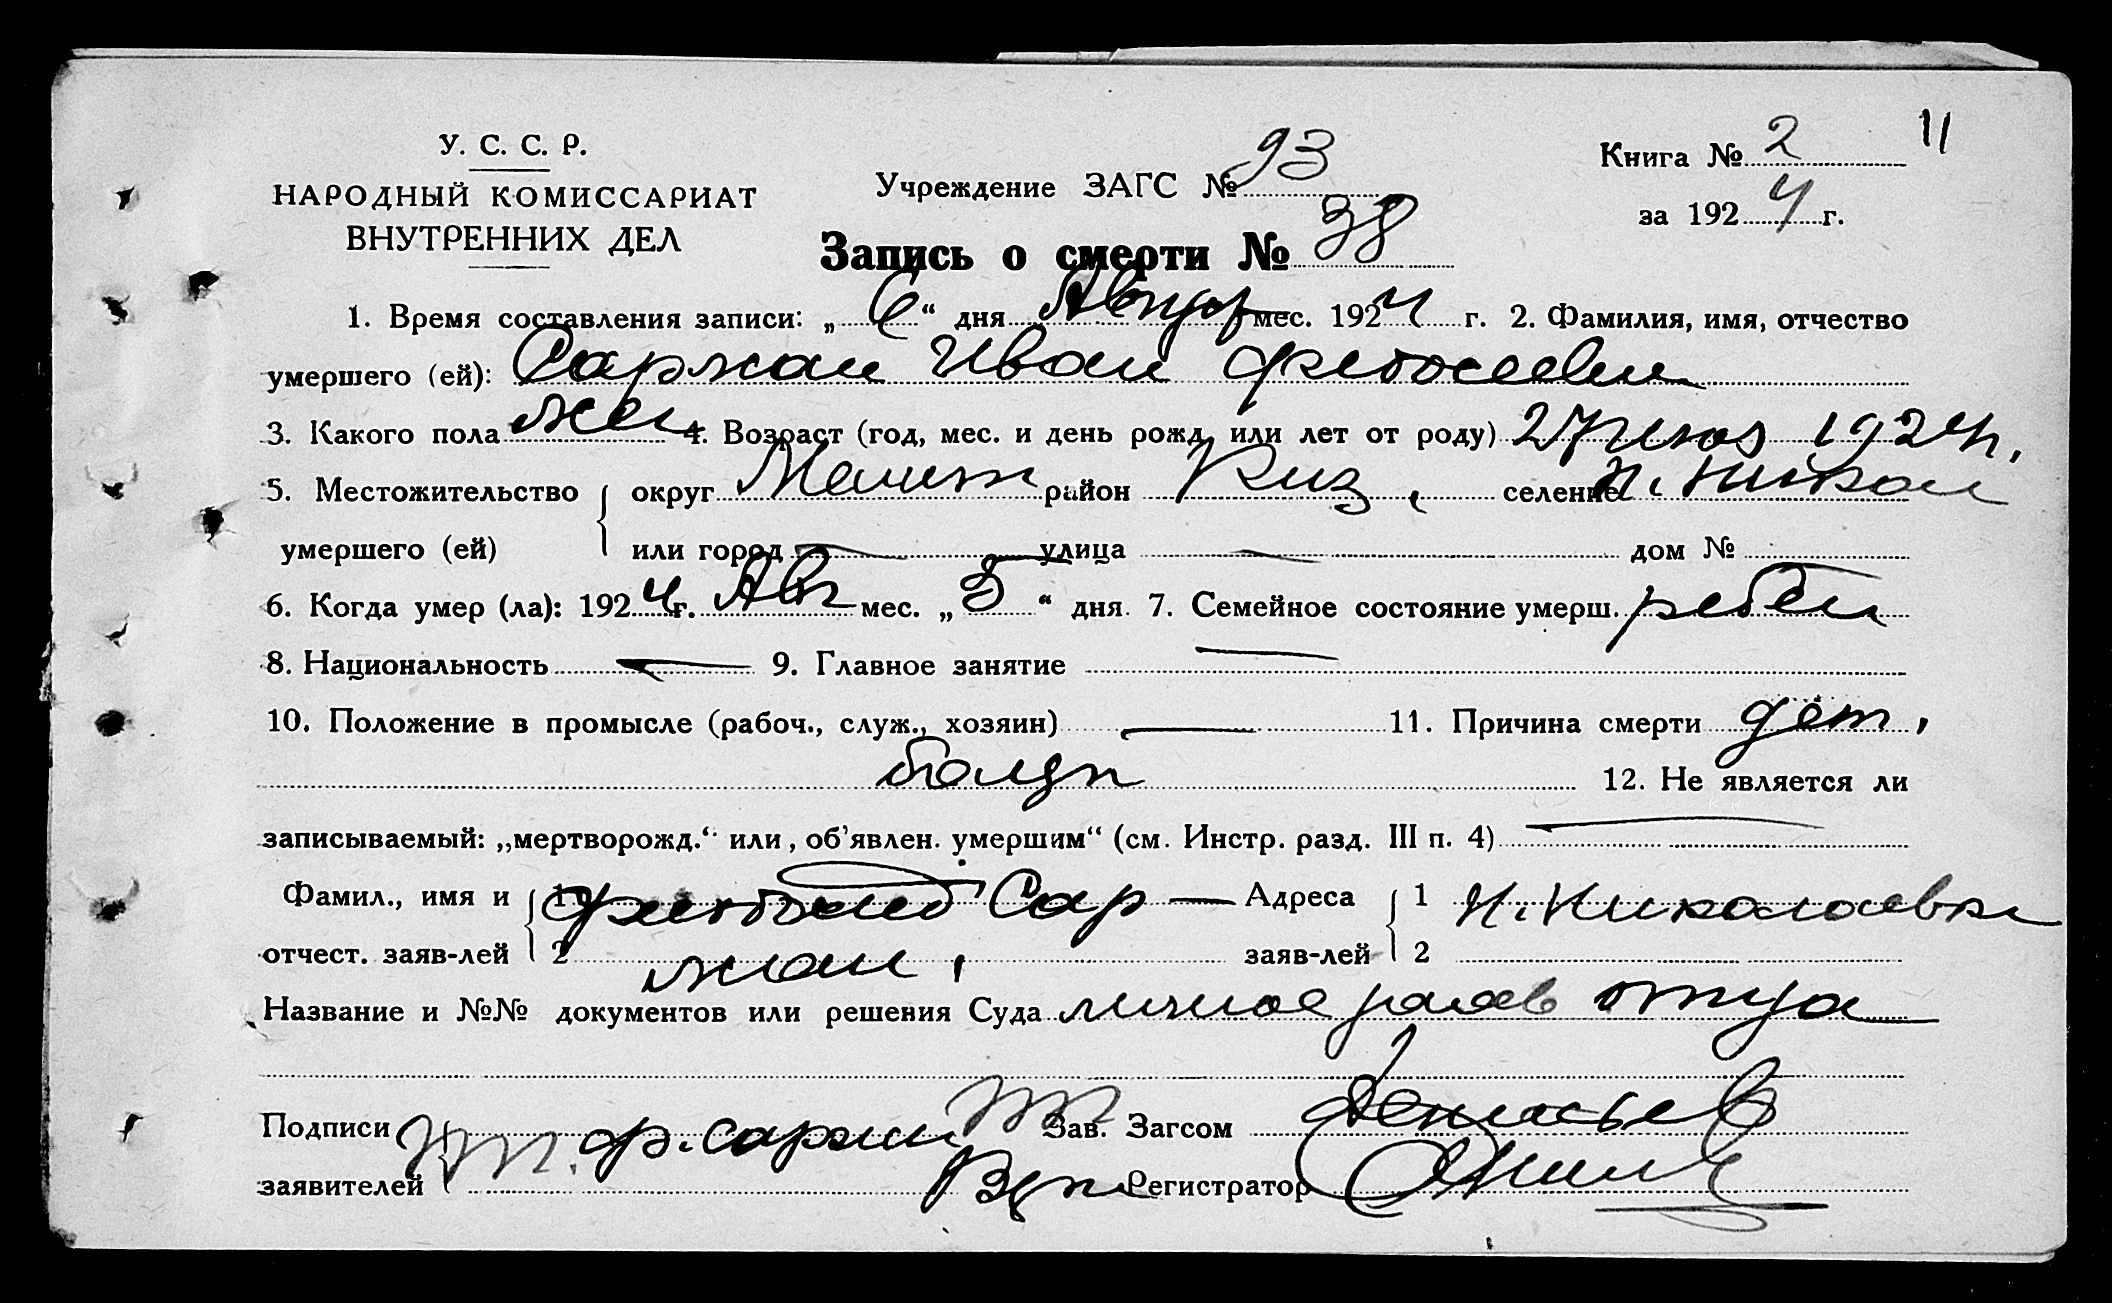 11
У. С. С. Р.
НАРОДНЫЙ КОМИССАРИАТ
ВНУТРЕННИХ ДЕЛ
Учреждение ЗАГС № 93
Книга № 2
за 1924 г.
Запись о смерти № 38
1. Время составления записи: „6“ дня Август мес. 1924 г. 2. Фамилия, имя, отчество
умершего (ей): Саржан Иван
3. Какого пола 4. Возраст (год, мес. и день рожд. или лет от роду) 27 1924 г.
5. Местожительство округ Мелит район селение Н. Никол
умершего (ей) или город — улица — дом № —
6. Когда умер (ла): 1924 г. Авг мес. „5“ дня. 7. Семейное состояние умерш. ребен
8. Национальность — 9. Главное занятие —
10. Положение в промысле (рабоч., служ., хозяин) — 11. Причина смерти дет.
12. Не является ли
записываемый: „мертворожд.“ или „об'явлен. умершим“ (см. Инстр. разд. III п. 4) —
Фамил., имя и 1 Сар— Адреса 1 Н. Николаевка
отчест. заяв-лей 2 жан, заяв-лей 2
Название и №№ документов или решения Суда личное отца
Подписи Ф. Саржан Зав. Загсом
заявителей Регистратор